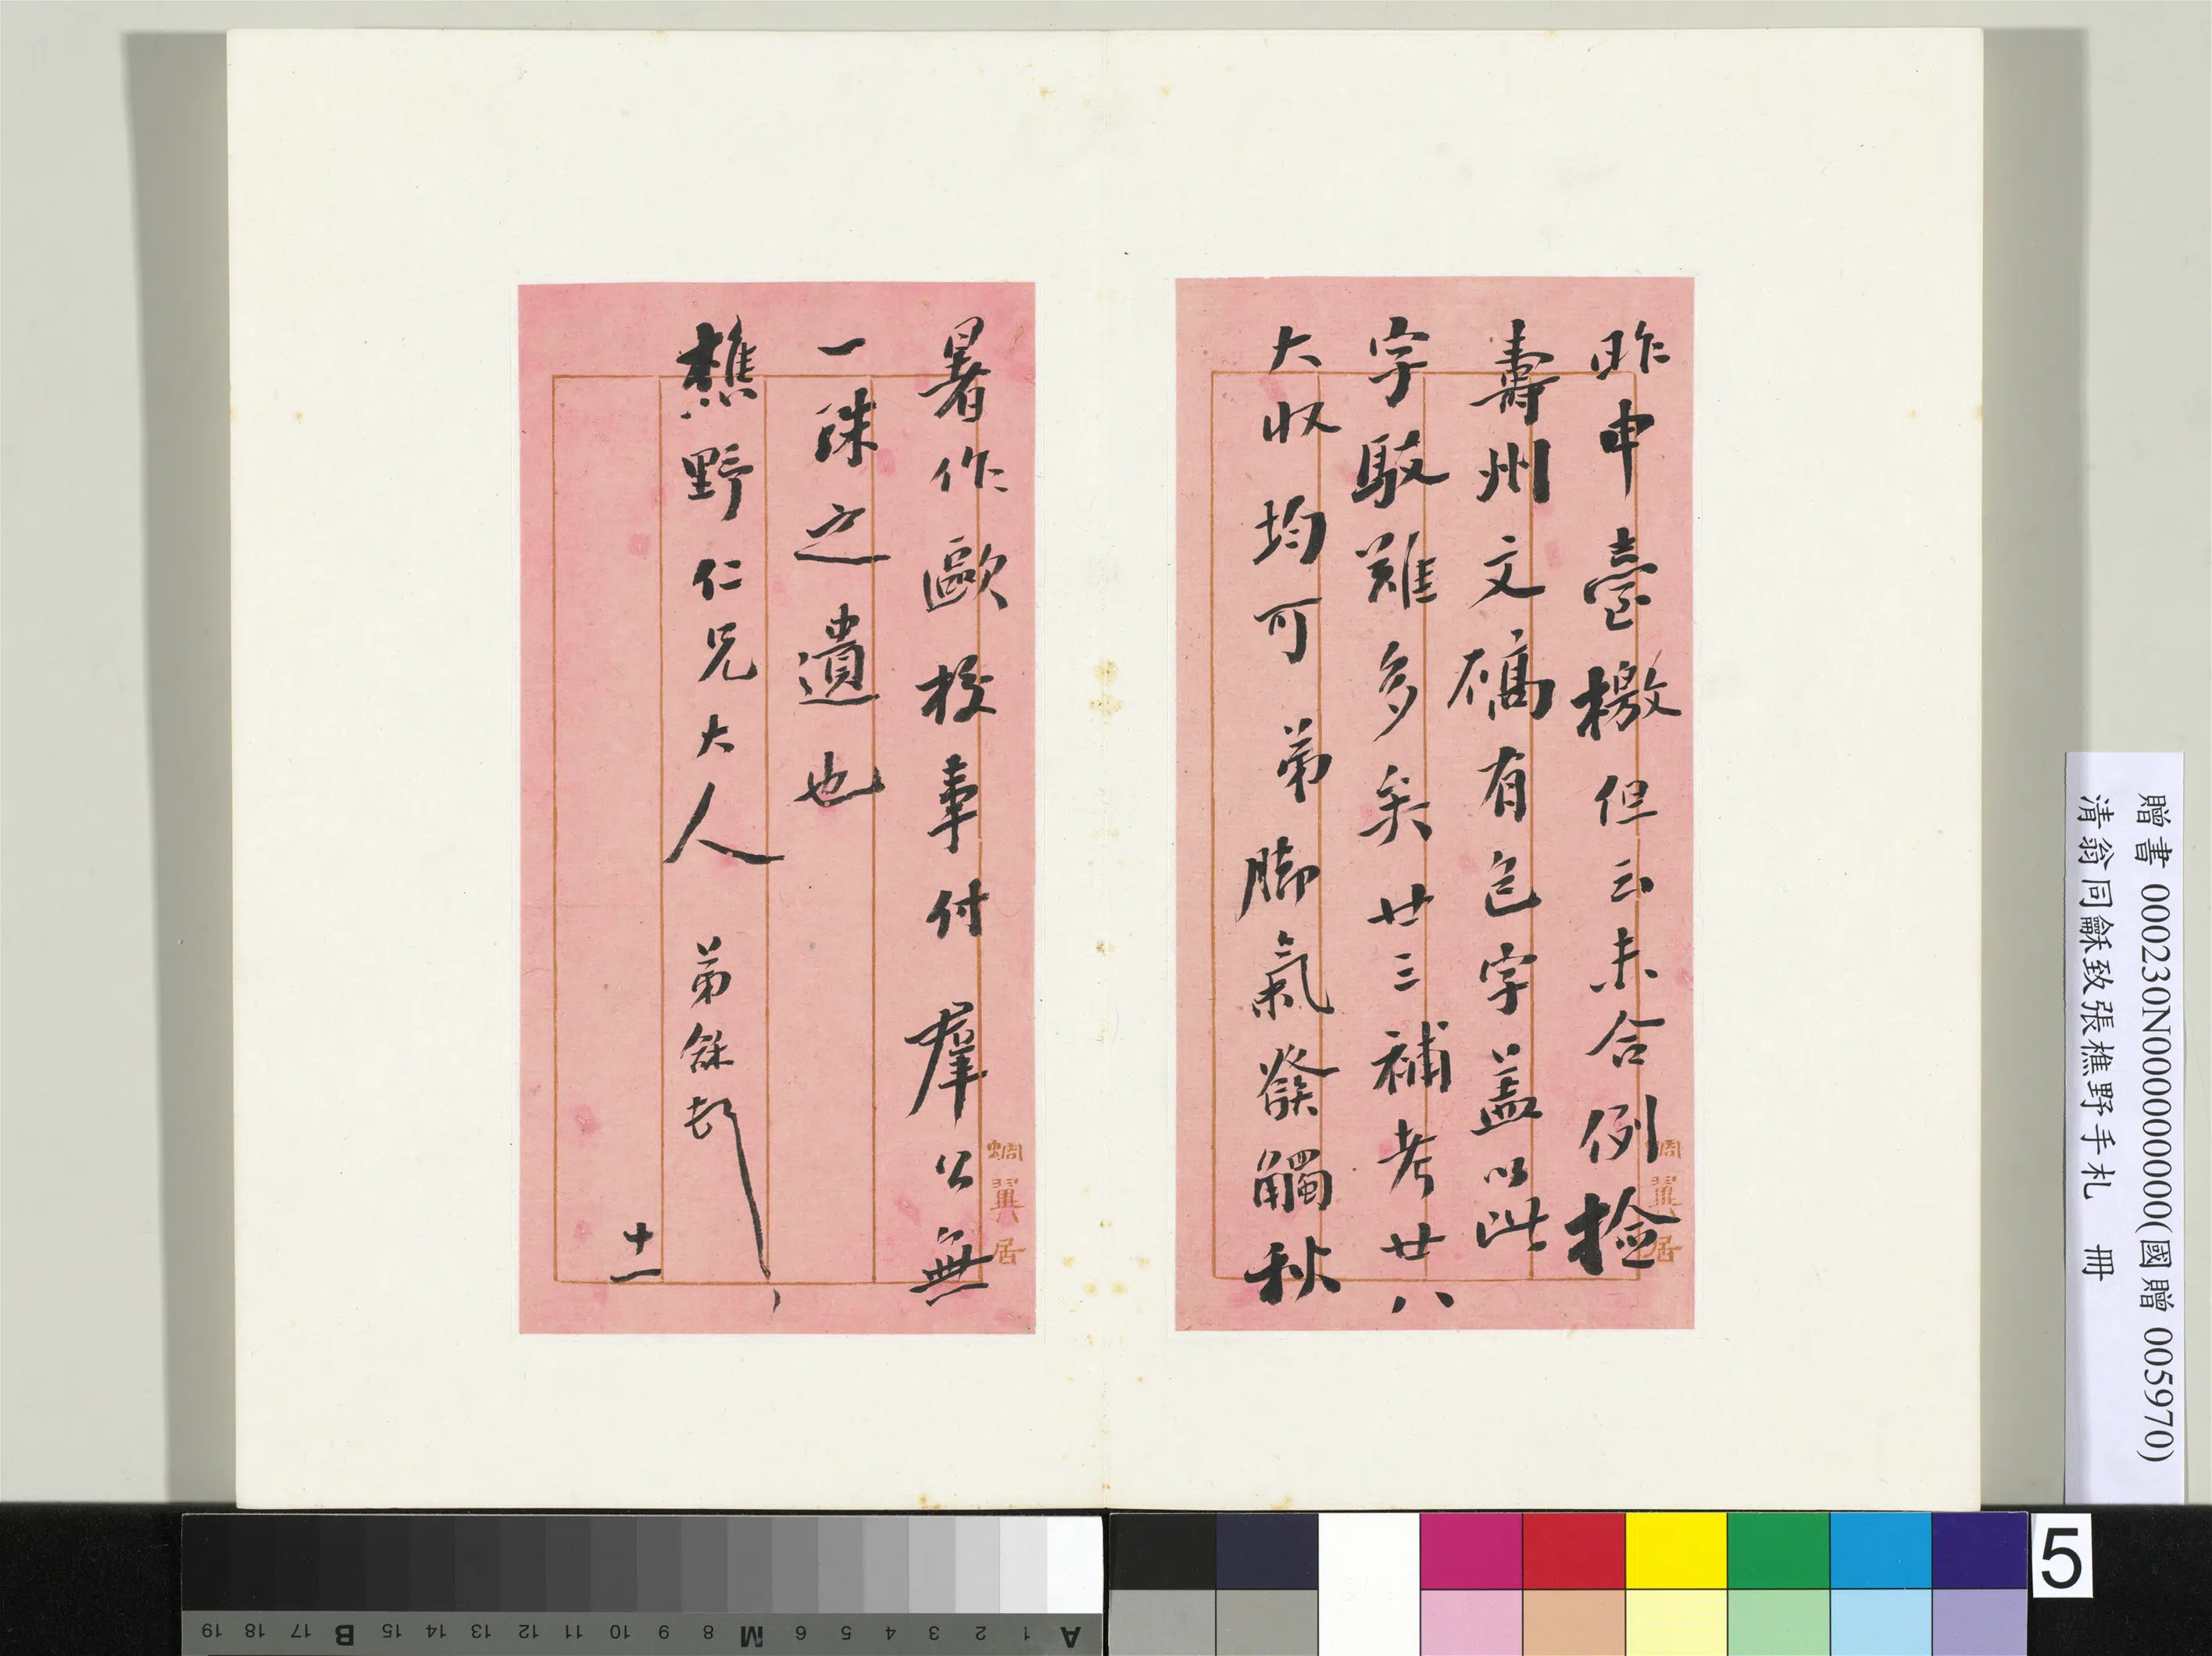 昨申臺檄但云未合例檢
壽州文稿有包字蓋以此
字駁難多矣廿三補考廿八
大收均可 弟腳氣發觸秋
蜩翼居
暑作歐校事付 羣公無
一珠之遺也
樵野仁兄大人 弟龢頓
十一
蜩翼居
贈書 000230N000000000(國贈 005970)
清翁同龢致張樵野手札 冊
5
A 1 2 3 4 5 6 M 8 9 10 11 12 13 14 15 B 17 18 19